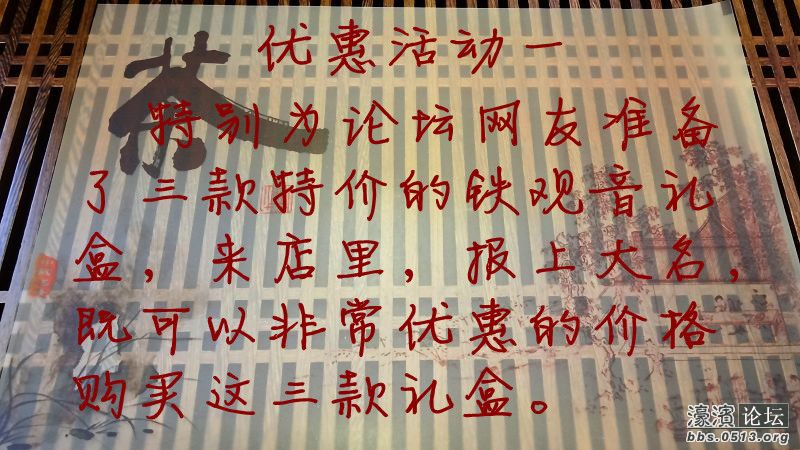 优惠活动一
特别为论坛网友准备
了三款特价的铁观音礼
盒，来店里，报上大名，
既可以非常优惠的价格
购买这三款礼盒。
茶
濠滨论坛
bbs.0513.org